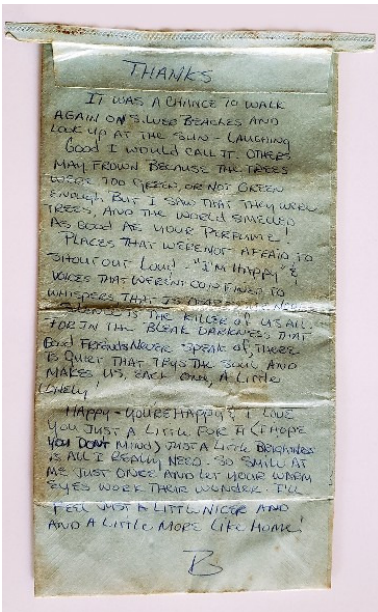 THANKS
IT WAS A CHANCE TO WALK
AGAIN ON SILVER BEACHES AND
LOOK UP AT THE SUN - LAUGHING
GOOD I WOULD CALL IT. OTHERS
MAY FROWN BECAUSE THE TREES
WERE TOO GREEN, OR NOT GREEN
ENOUGH. BUT I SAW THAT THEY WERE
TREES, AND THE WORLD SMELLED
AS GOOD AS YOUR PERFUME!
PLACES THAT WERE NOT AFRAID TO
SHOUT OUT LOUD "I'M HAPPY" &
VOICES THAT WEREN'T CONFINED TO
WHISPERS THAT
SILENCE IS THE KILLER OF US ALL.
FOR IN THE BLEAK DARKNESS THAT
GOOD FRIENDS NEVER SPEAK OF, THERE
IS QUIET THAT TRYS THE SOUL AND
MAKES US, EACH ONE, A LITTLE
LONELY!
HAPPY - YOU'RE HAPPY & I LOVE
YOU JUST A LITTLE FOR IT (I HOPE
YOU DON'T MIND) JUST A LITTLE BRIGHTNESS
IS ALL I REALLY NEED. SO SMILE AT
ME JUST ONCE AND LET YOUR WARM
EYES WORK THEIR WONDER. I'LL
FEEL JUST A LITTLE NICER AND
AND A LITTLE MORE LIKE HOME!
B